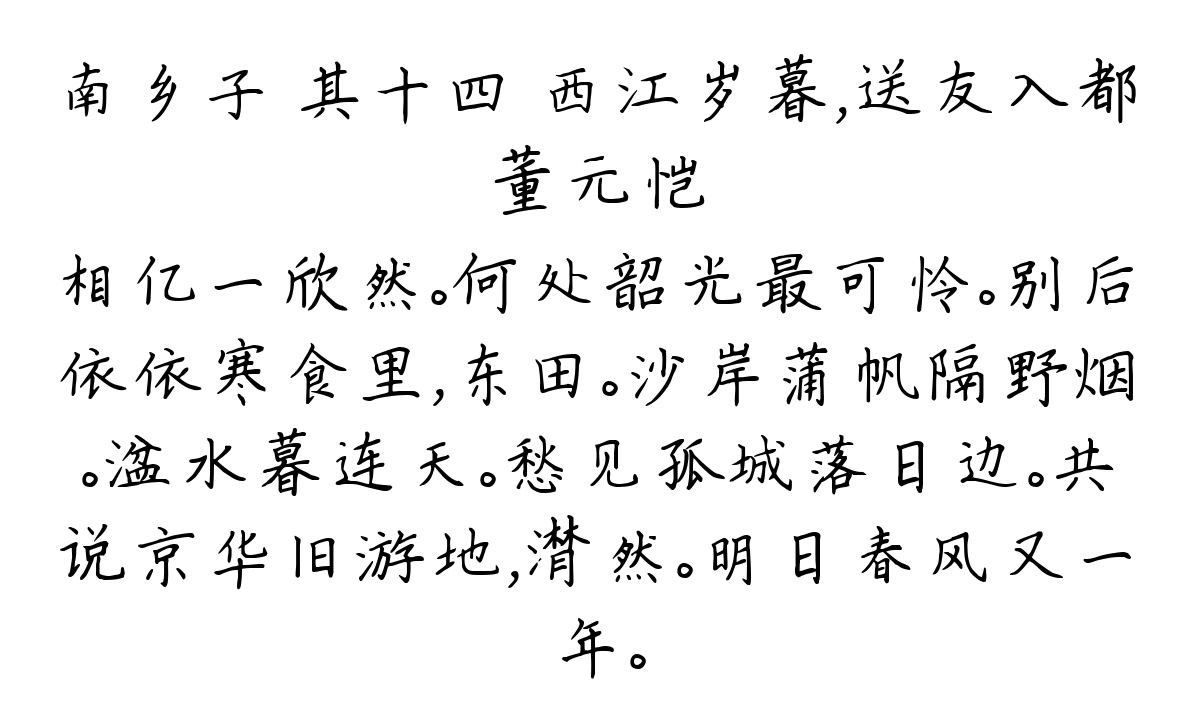 南乡子 其十四 西江岁暮,送友入都
董元恺
相亿一欣然。何处韶光最可怜。别后
依依寒食里,东田。沙岸蒲帆隔野烟
。湓水暮连天。愁见孤城落日边。共
说京华旧游地,潸然。明日春风又一
年。